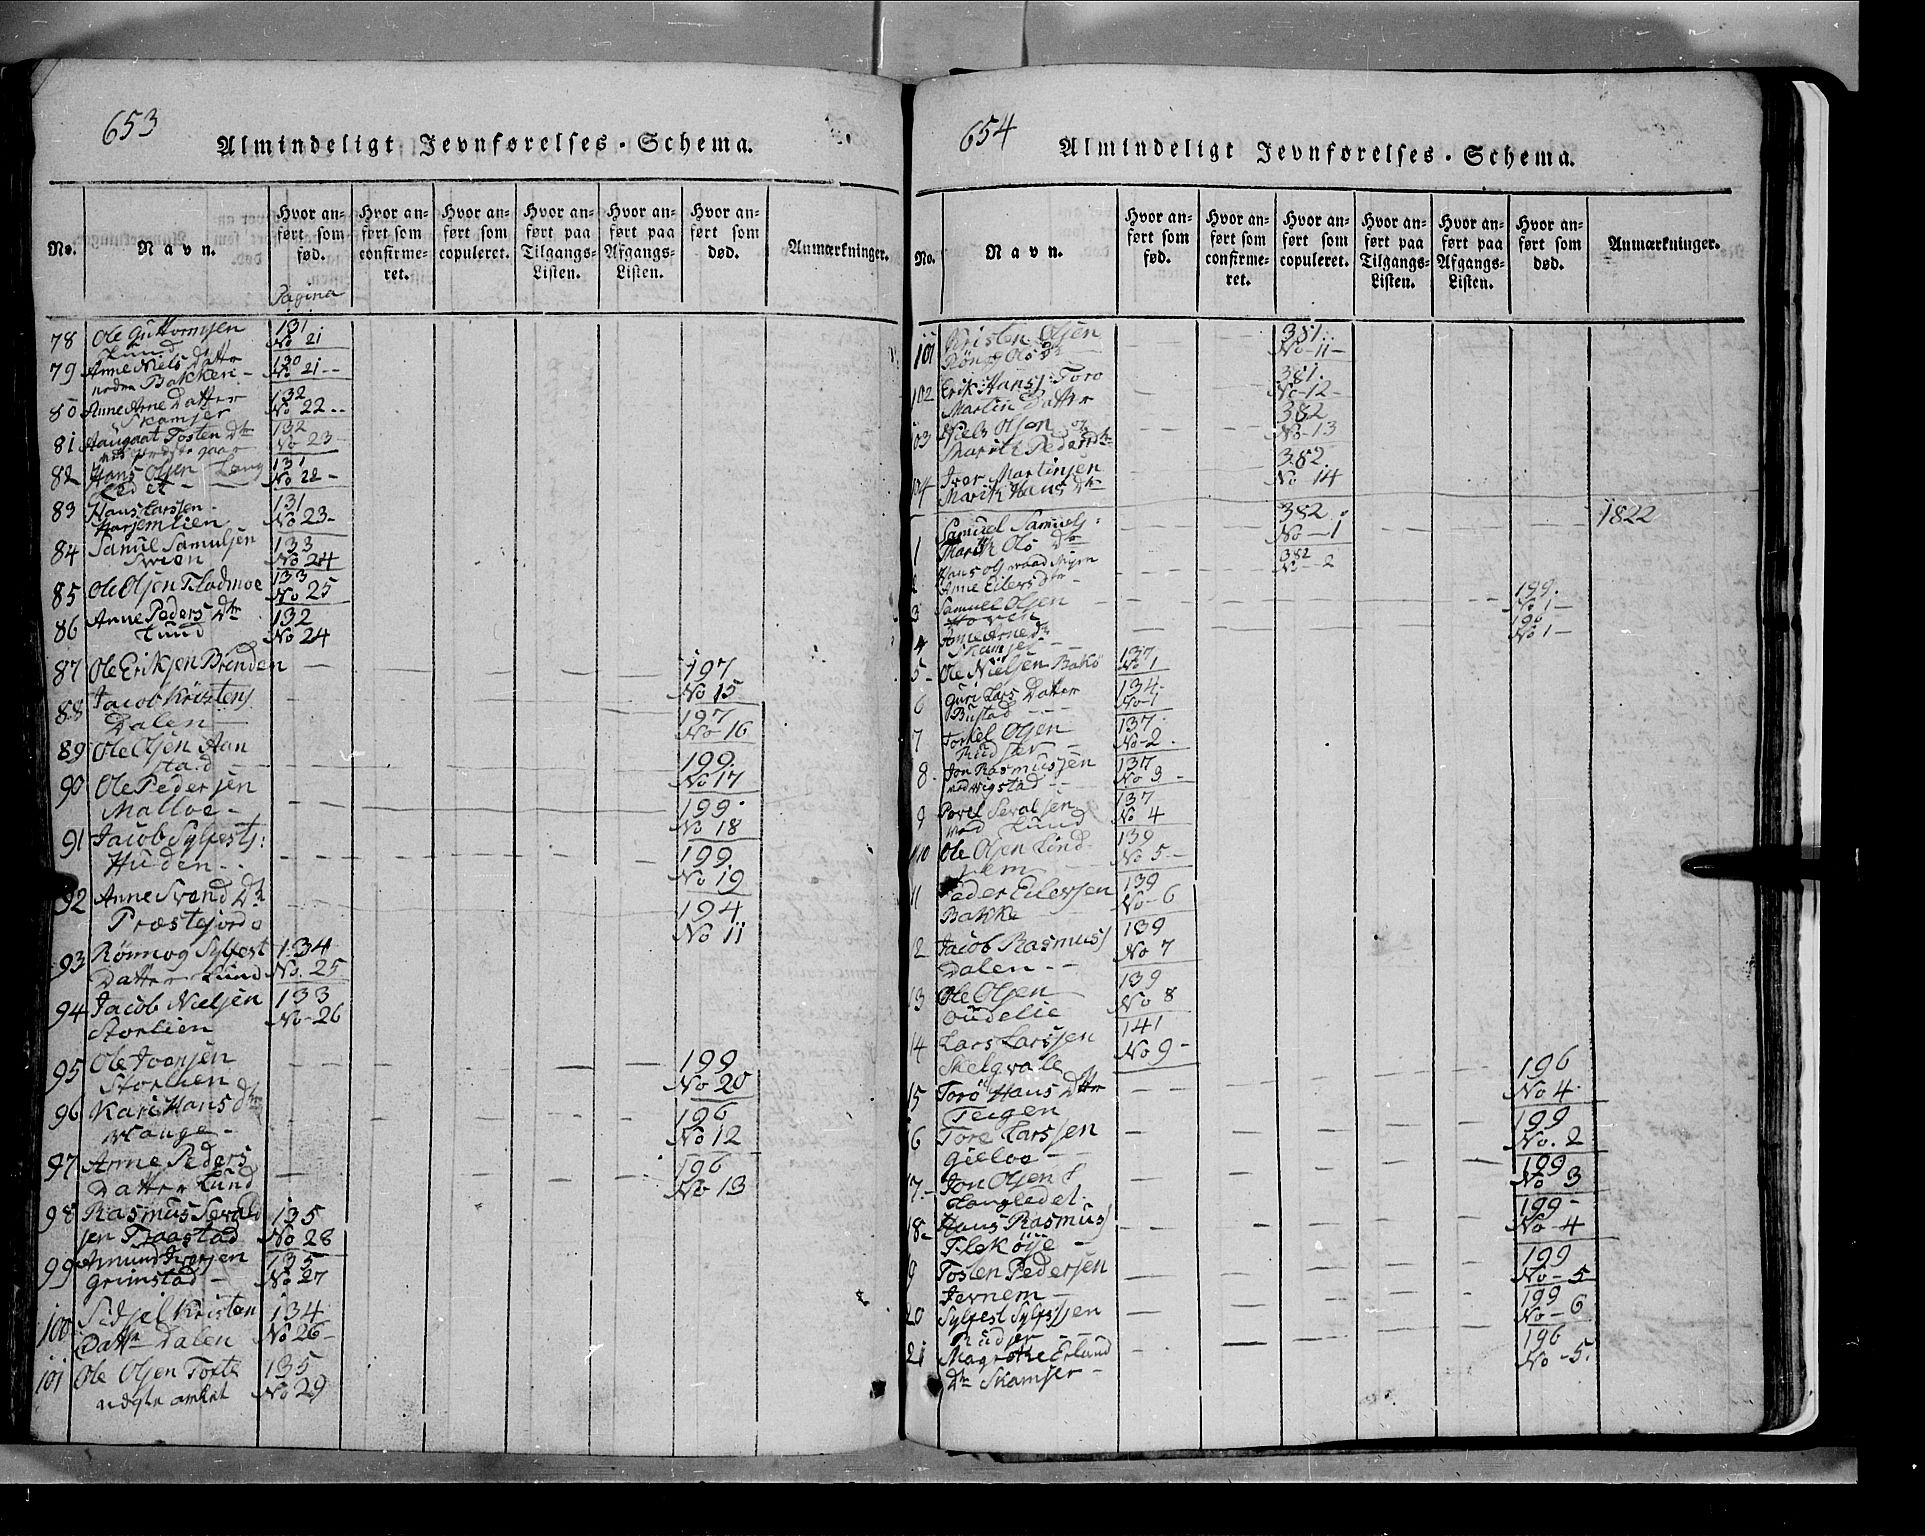 653
Almindeligt Jevnførelses-Schema.
No.
Navn.
Hvor an-
ført som
fød.
Hvor an-
ført som
confirme-
ret.
Hvor an-
ført som
copuleret.
Hvor an-
ført paa
Tilgangs-
Listen.
Hvor an-
ført paa
Afgangs-
Listen.
Hvor an-
ført som
død.
Anmærkninger.
Pagina
78 Ole Guttormsen 131
Lund No 21
79 Anne Niels Datter 130
neden Bakken - No 21
80 Anne Arne Datter 132
Skamser No 22
81 Tosten Dtr 132
No 23
82 Hans Olsen Lang 131
Ledet - No 22 -
83 Hans Larsen 131
Harjemlien No 23 -
84 Samuel Samuelsen 133
No 24
85 Ole Olsen Flodmoe 133
No 25
86 Anne Peders Dtr 132
Lund No 24
87 Ole Eriksen Brenden 197
No 15
88 Jacob Kristens 197
Dalen No 16
89 Ole Olsen Aan 199.
stad No 17
90 Ole Pedersen 199.
Malloe - No 18
91 Jacob Sylfests: 199.
Huden No 19
92 Anne Svend Dtr 194
Præstejordo No 11
93 Rønnog Sylfest 134
Datter Lund No. 25
94 Jacob Nielsen 133
Storlien No 26
95 Ole Joonsen 199
Storlien No 20
96 Kari Hans Dtr 196
No 12
97 Anne Peders 196
Datter Lund No 13
98 Rasmus Sevald 135
sen Traastad No 28
99 Amund Iversen 135
Grimstad - No 27
100 Sidsel Kristen 134
Datter Dalen No 26 -
101 Ole Olsen Tofte 135
No 29
654
Almindeligt Jevnførelses-Schema.
No.
Navn.
Hvor an-
ført som
fød.
Hvor an-
ført som
confirme-
ret.
Hvor an-
ført som
copuleret.
Hvor an-
ført paa
Tilgangs-
Listen.
Hvor an-
ført paa
Afgangs-
Listen.
Hvor an-
ført som
død.
Anmærkninger.
101 Kristen Olsen 381.
No 11 -
102 Erik Hans: Toro 381.
Martin Datter No 12 -
103 Niels Olsen og 382
Marit Peders Dtr No 13
104 Iver Martinsen 382.
Marit Hans Dtr No 14
Samuel Samuels: 382. 1822
1 Marit Ols Dtr No 1
2 382
Anne Eilers Dtr - No 2
3 Samuel Olsen 199.
No 1 -
4 Arne Dtr 196
Skamser No 1 -
5 Ole Nielsen 137
No 1
6 Guri Lars Datter 134
Bustad No 1
7 Torkel Olsen 137
No 2.
8 Jon Rasmussen 137
No 3 -
9 Povel Sevalsen 137
Lund No 4
10 Ole Olsen Lind 139
No 5 -
11 Peder Eilersen 139
Bakke No 6
12 Jacob Rasmus 139
Dalen - - No 7
13 Ole Olsen 139
No 8
14 Lars Larssen 141
No 9 -
15 Torø Hans Dtr 196
Teigen No 4
16 Tore Larssen 199
No. 2
17 Jon Olsen 199
Langledet No 3
18 Hans Rasmus 199
No 4
19 Tosten Pedersen 199
Jevnem No - 5
20 Sylfest Sylfestsen 199
No - 6
21 Magrethe Erland 196
Dtr Skamser - No - 5.